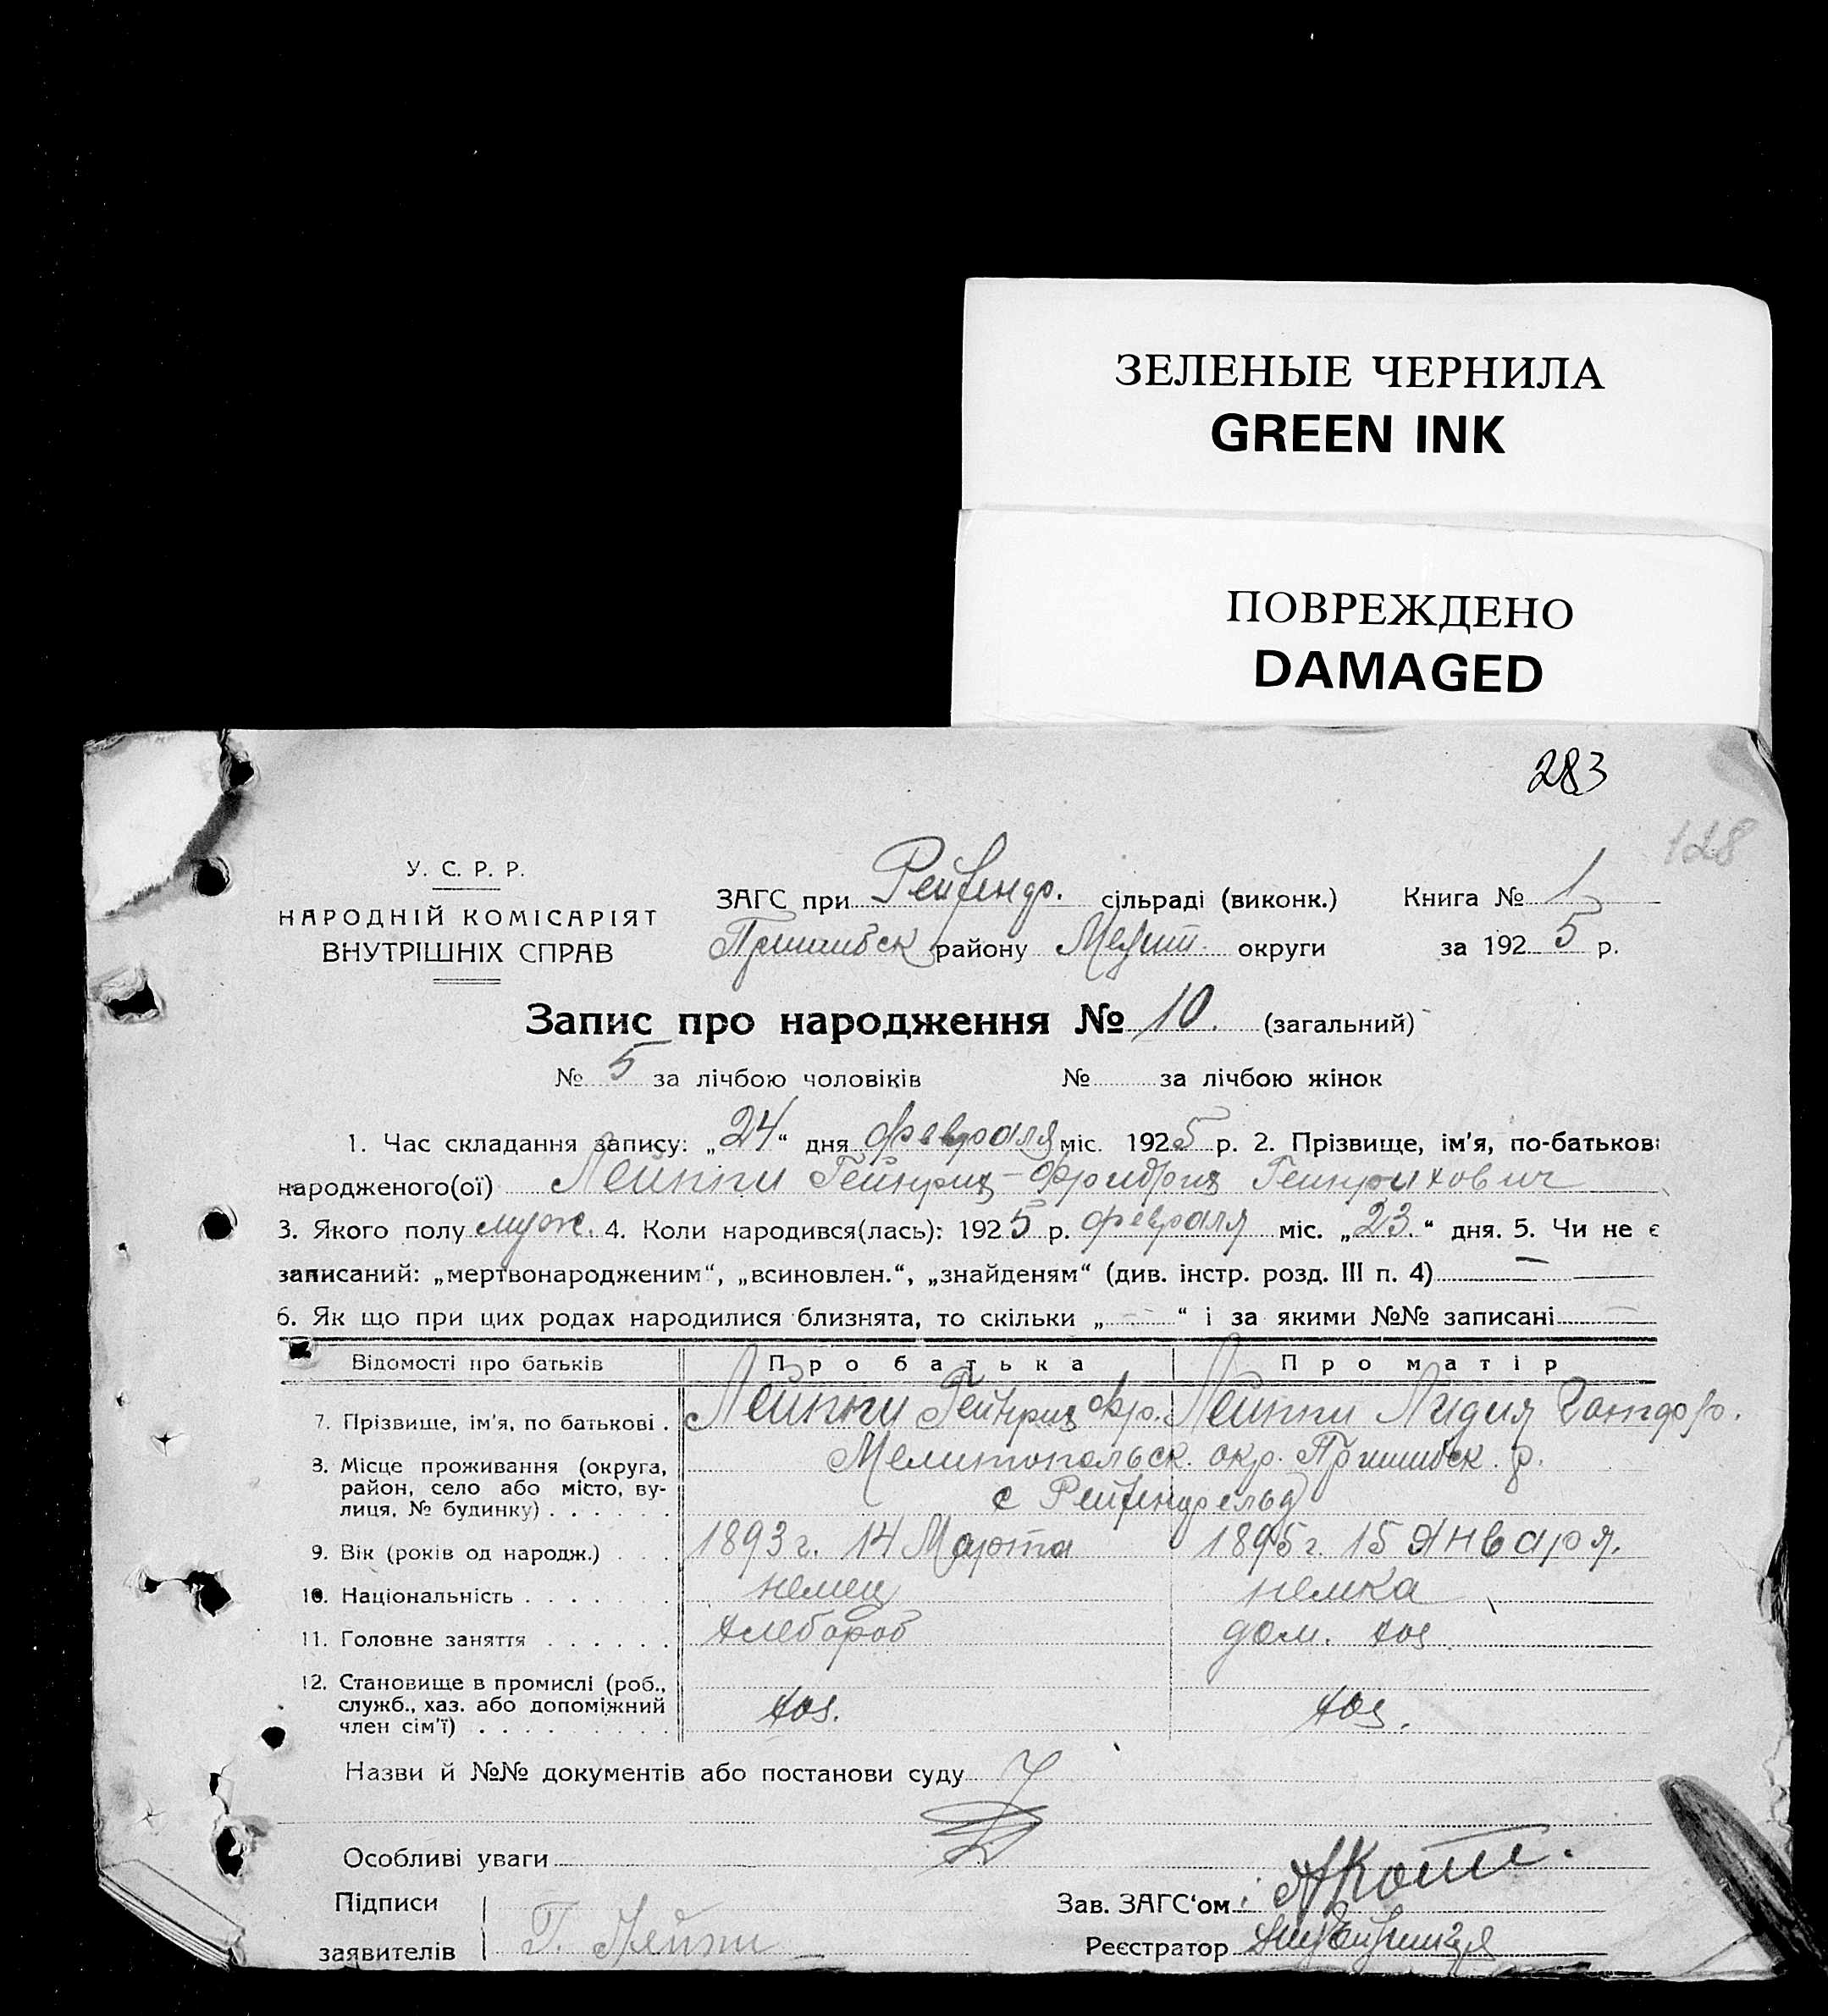 ЗЕЛЕНЫЕ ЧЕРНИЛА
GREEN INK
ПОВРЕЖДЕНО
DAMAGED
283
128
У. С. Р. Р.
НАРОДНІЙ КОМІСАРІЯТ
ВНУТРІШНІХ СПРАВ
ЗАГС при Рейхендр. сільраді (виконк.) Книга № 1
Пришибск району Мелит. округи за 1925 р.
Запис про народження № 10. (загальний)
№ 5 за лічбою чоловіків № за лічбою жінок
1. Час складання запису: „24“ дня февраля міс. 1925 р. 2. Прізвище, ім'я, по-батькові
народженого(ої) Лейппи Гейнрих-Фридрих Гейнрихович
3. Якого полу муж. 4. Коли народився(лась): 1925 р. февраля міс. „23.“ дня. 5. Чи не є
записаний: „мертвонародженим“, „всиновлен.“, „знайденям“ (див. інстр. розд. III п. 4) —
6. Як що при цих родах народилися близнята, то скільки „—“ і за якими №№ записані —
Відомості про батьків Про батька Про матір
7. Прізвище, ім'я, по батькові . Лейппи Гейнрих Фр. Лейппи Лидия Готфр.
8. Місце проживання (округа, район, село або місто, вулиця, № будинку) . . . . . .
Мелитопольск. окр. Пришибск. р.
с Рейхенфельд
9. Вік (років од народж.) . . . 1893 г. 14 Марта 1895 г. 15 Января.
10. Національність . . . . . . . немец немка
11. Головне заняття . . . . . . хлебороб дом. хоз
12. Становище в промислі (роб., служб., хаз. або допоміжний член сім'ї) . . . . . . . . хоз. хоз.
Назви й №№ документів або постанови суду
Особливі уваги
Підписи
заявителів Г. Лейппи
Зав. ЗАГС‘ом
Реєстратор